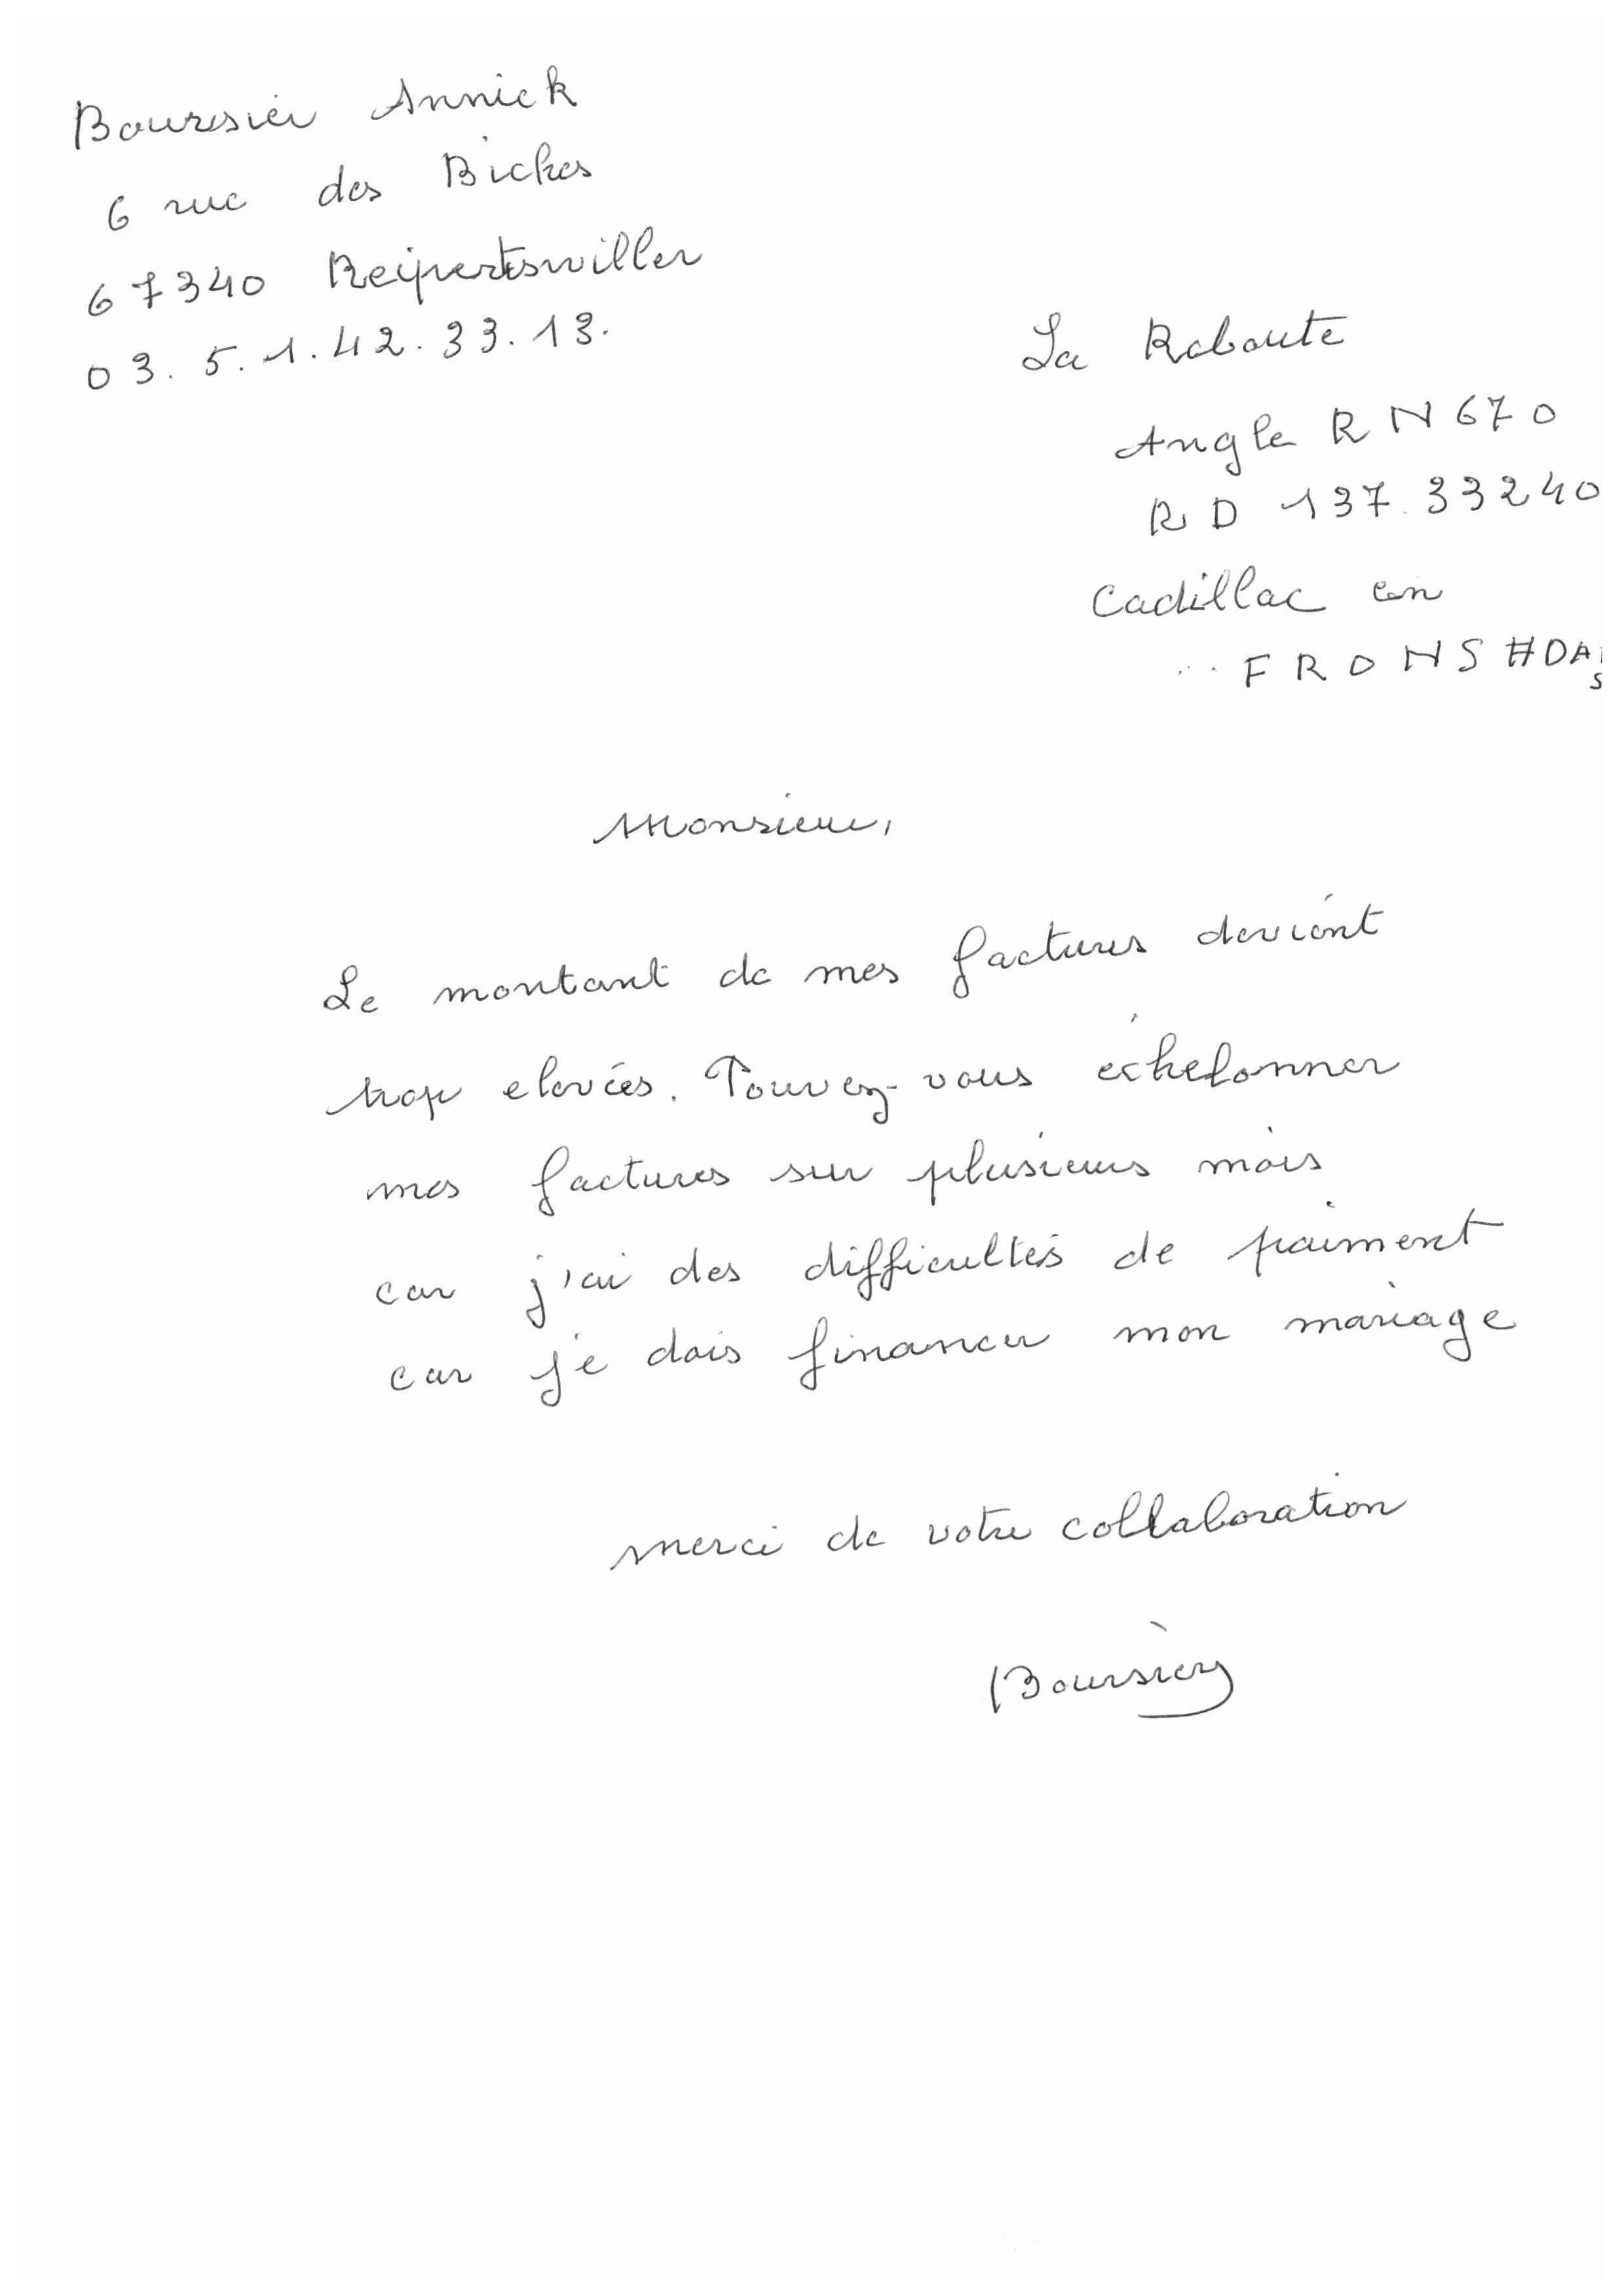 Boursier Annick
6 rue des Biches
67340 Reipertswiller
03.5.1.42.33.13.
La Raboute
Angle RN 670
RD 137.33240
Cadillac en
FRONS
Monsieur,
Le montant de mes factures devient
trop elevées. Pouvez-vous échelonner
mes factures sur plusieurs mois
car j'ai des difficultés de paiment
car je dois financer mon mariage
merci de votre collaboration
Boursier